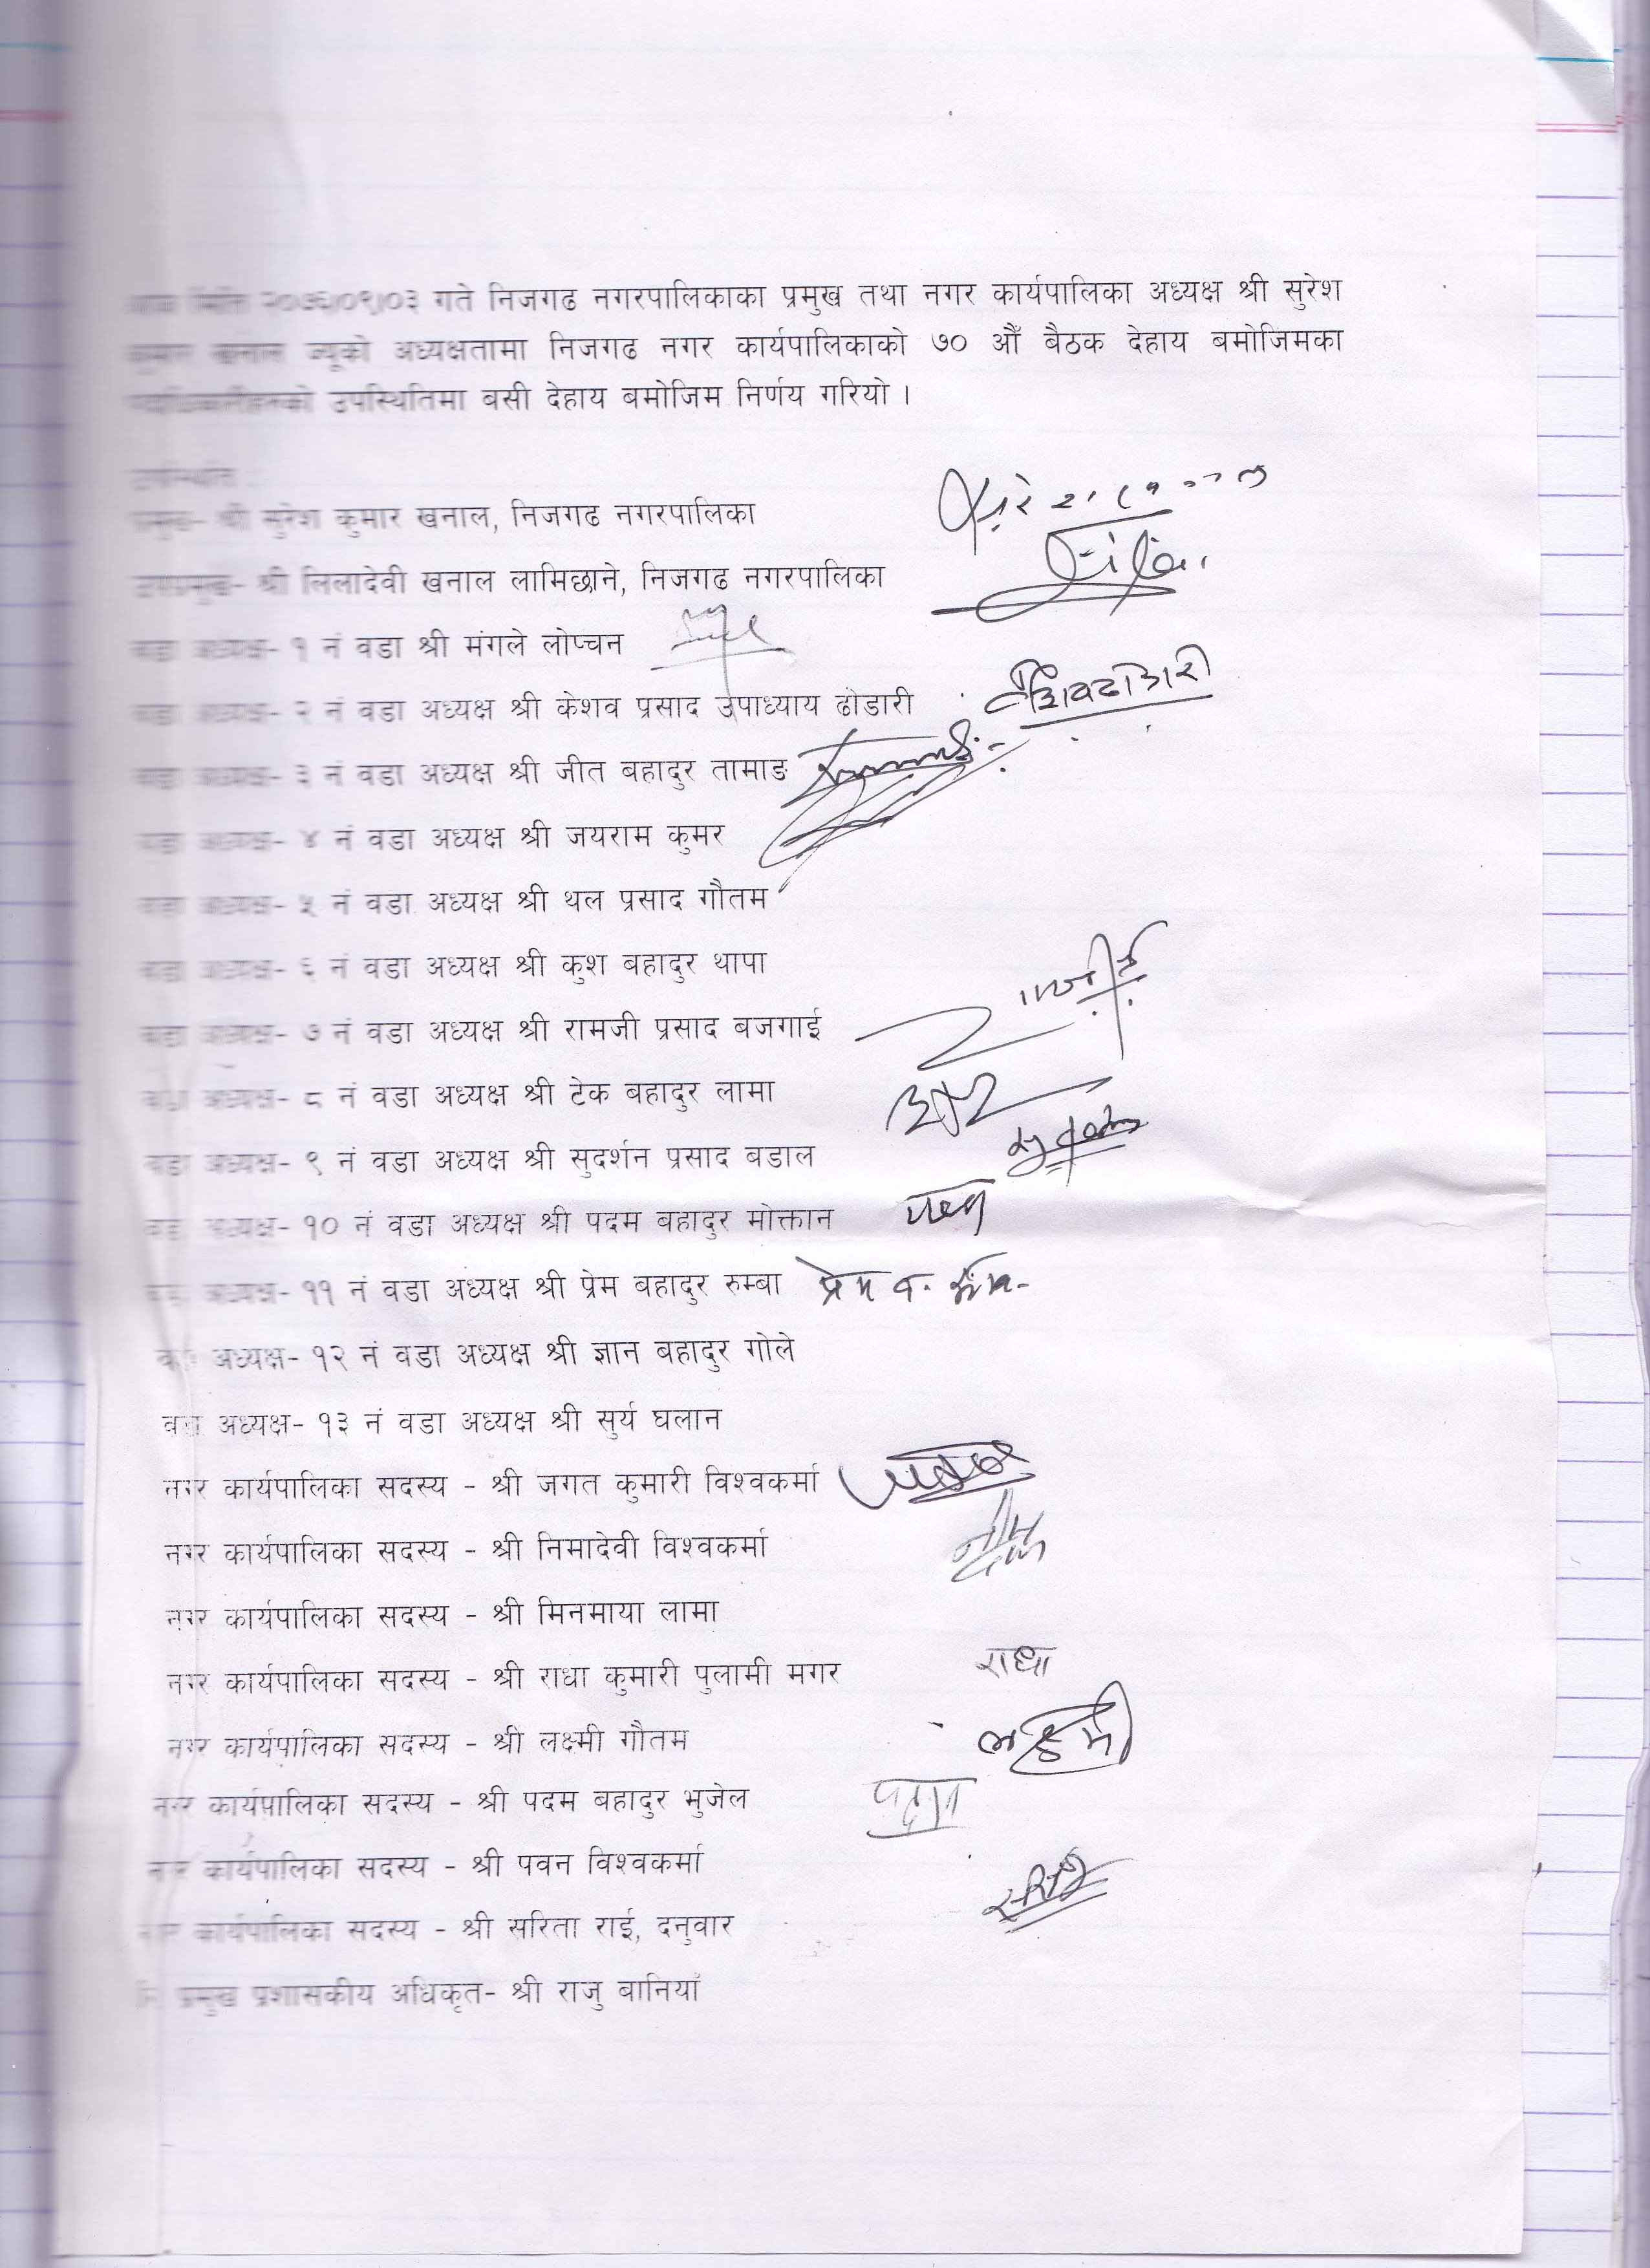 आज मिति २०७६/०९/०३ गते निजगढ नगरपालिकाका प्रमुख तथा नगर कार्यपालिका अध्यक्ष श्री सुरेश
कुमार खनाल ज्यूको अध्यक्षतामा निजगढ नगर कार्यपालिकाको ७० औँ बैठक देहाय बमोजिमका
पदाधिकारीहरुको उपस्थितिमा बसी देहाय बमोजिम निर्णय गरियो ।
उपस्थिति :
प्रमुख- श्री सुरेश कुमार खनाल, निजगढ नगरपालिका
उपप्रमुख- श्री लिलादेवी खनाल लामिछाने, निजगढ नगरपालिका
वडा अध्यक्ष- १ नं वडा श्री मंगले लोप्चन
वडा अध्यक्ष- २ नं वडा अध्यक्ष श्री केशव प्रसाद उपाध्याय ढोडारी
वडा अध्यक्ष- ३ नं वडा अध्यक्ष श्री जीत बहादुर तामाङ
वडा अध्यक्ष- ४ नं वडा अध्यक्ष श्री जयराम कुमर
वडा अध्यक्ष- ५ नं वडा अध्यक्ष श्री थल प्रसाद गौतम
वडा अध्यक्ष- ६ नं वडा अध्यक्ष श्री कुश बहादुर थापा
वडा अध्यक्ष- ७ नं वडा अध्यक्ष श्री रामजी प्रसाद बजगाई
वडा अध्यक्ष- ८ नं वडा अध्यक्ष श्री टेक बहादुर लामा
वडा अध्यक्ष- ९ नं वडा अध्यक्ष श्री सुदर्शन प्रसाद बडाल
वडा अध्यक्ष- १० नं वडा अध्यक्ष श्री पदम बहादुर मोक्तान
वडा अध्यक्ष- ११ नं वडा अध्यक्ष श्री प्रेम बहादुर रुम्बा प्रेम व.
वडा अध्यक्ष- १२ नं वडा अध्यक्ष श्री ज्ञान बहादुर गोले
वडा अध्यक्ष- १३ नं वडा अध्यक्ष श्री सुर्य घलान
नगर कार्यपालिका सदस्य - श्री जगत कुमारी विश्वकर्मा
नगर कार्यपालिका सदस्य - श्री निमादेवी विश्वकर्मा
नगर कार्यपालिका सदस्य - श्री मिनमाया लामा
नगर कार्यपालिका सदस्य - श्री राधा कुमारी पुलामी मगर राधा
नगर कार्यपालिका सदस्य - श्री लक्ष्मी गौतम लक्ष्मी
नगर कार्यपालिका सदस्य - श्री पदम बहादुर भुजेल
नगर कार्यपालिका सदस्य - श्री पवन विश्वकर्मा
नगर कार्यपालिका सदस्य - श्री सरिता राई, दनुवार
नि प्रमुख प्रशासकीय अधिकृत- श्री राजु बानियाँ